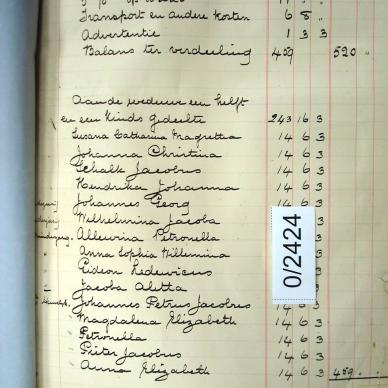 Transport en andere kosten 6 8 "
Advertentie 1 3 3
Balans ter verdeeling 459 520 "
Aan de weduwe een helft
en een kinds gedeelte 243 16 3
Susana Catharina Magretha 14 6 3
Johanna Christina 14 6 3
Schalk Jacobus 14 6 3
Hendrika Johanna 14 6 3
Johannes Georg 14 6 3
Wilhelmina Jacoba 14 6 3
Allewina Petronella 14 3
Anna Sophia Willemina 14 3
Gideon Lodewicus 14 3
Jacoba Aletta 14 3
Johannes Petrus Jacobus 14 6 3
Magdalena Elizabeth 14 6 3
Petronella 14 6 3
Pieter Jacobus 14 6 3
Anna Elizabeth 14 6 3 459 "
0/2424